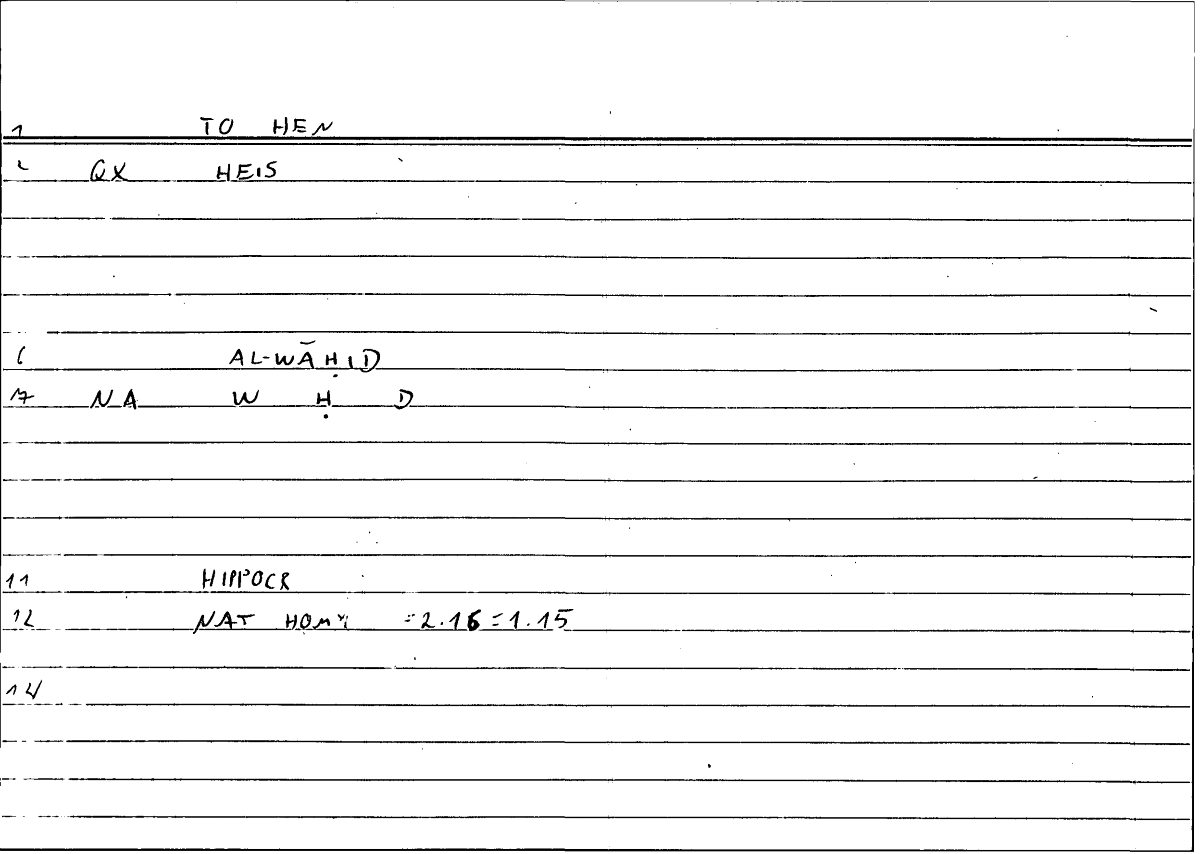 1 TO HEN
2 QX HEIS
6 AL-WĀḤID
7 NA W Ḥ D
11 HIPPOCR
12 NAT HOM =2.16=1.15
14